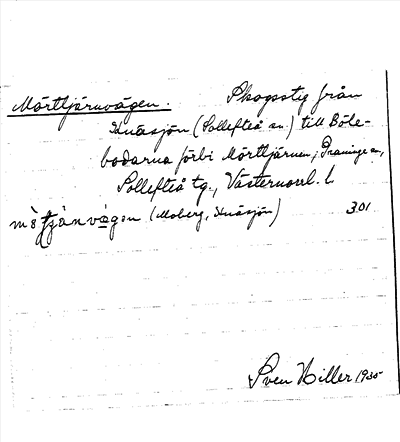 Mörttjärnvägen. Skogsstig från
Knäsjön (Sollefteå sn.) till Böle-
bodarna förbi Mörttjärnen; Graninge sn,
Sollefteå tg., Västernorrl. l.
vägen (Moberg, Knäsjön) 301
Sven Hiller 1935